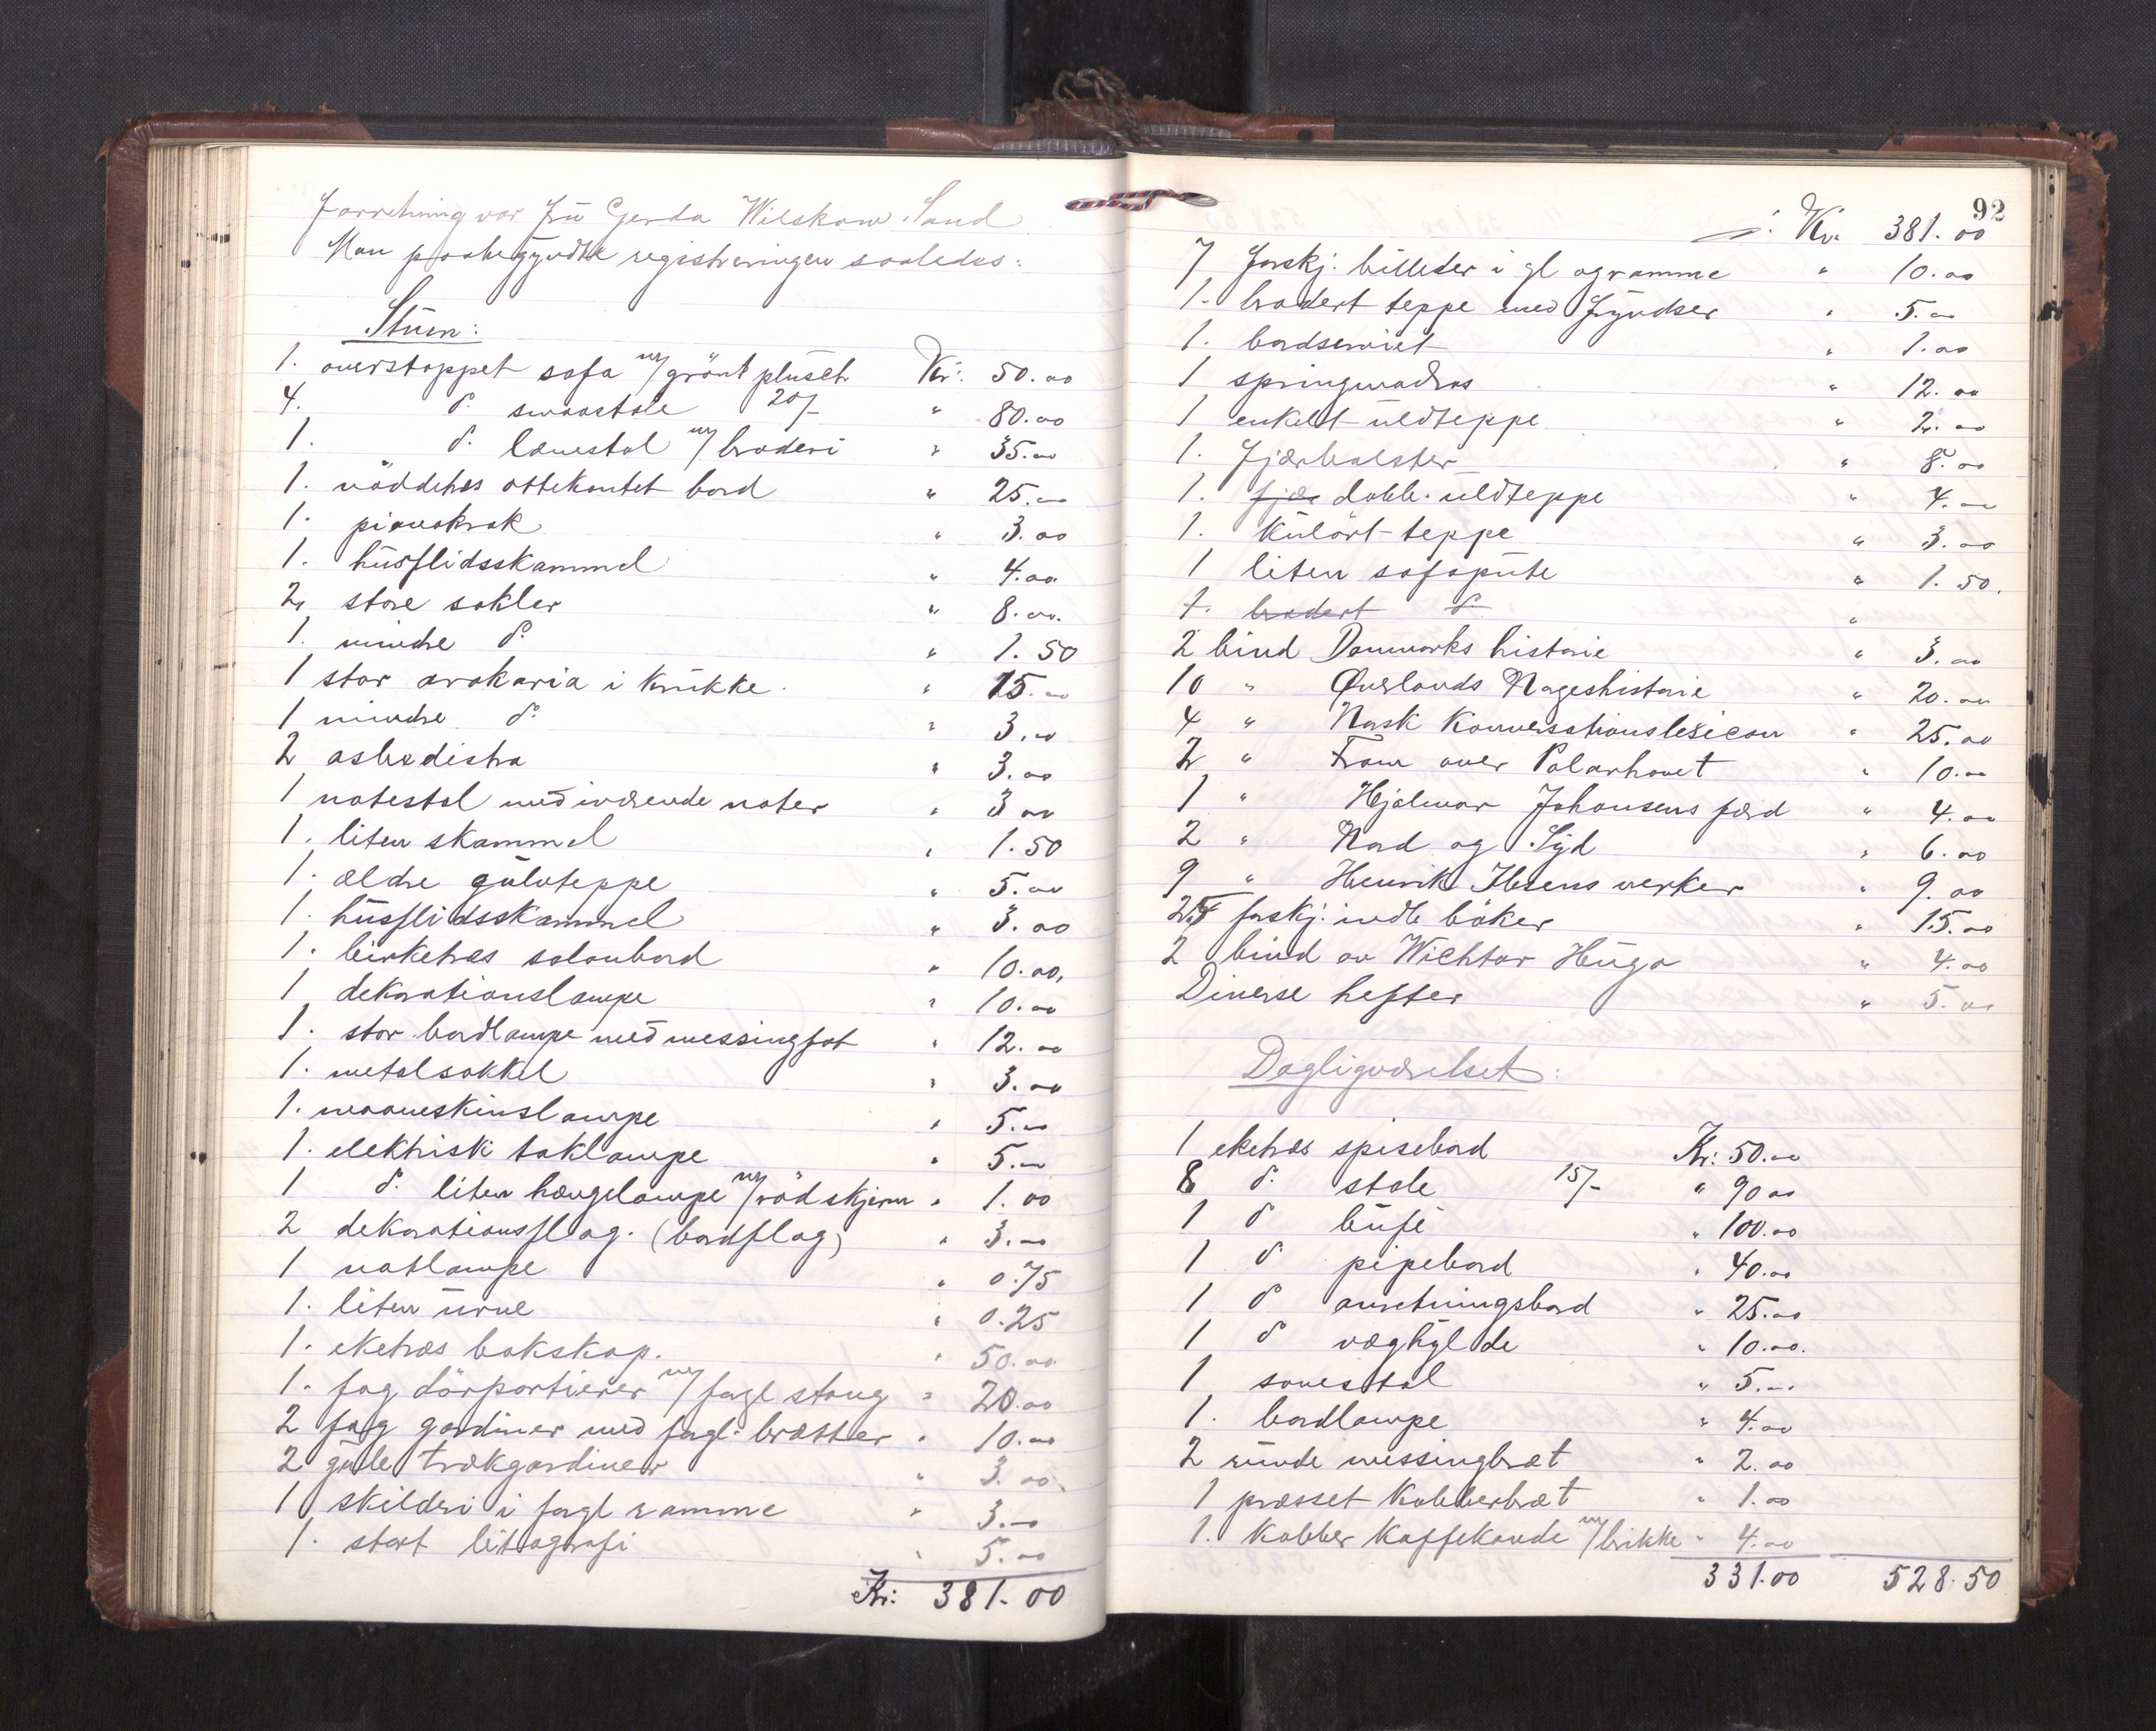 forretning var Fru Gerda Wilskow Sand
Man paabegyndte registreringen saaledes:
Stuen:
1. overstoppet sofa m/grönt plusch Kr: 50.00
4. do. smaastole 20/- " 80.00
1. do. lænestol m/broderi " 35.00
1. nöddetræs ottekantet bord " 25.00
1. pianokrak " 3.00
1. husflidsskammel " 4.00
2 store sokler " 8.00
1. mindre do. " 1.50
1 stor arakaria i krukke. " 15.00
1 mindre do. " 3.00
2 asbedistra " 3.00
1 notestol med iværende noter " 3 00
1. liten skammel " 1.50
1. ældre gulvteppe " 5.00
1. husflidsskammel " 3.00
1. birketræs salonbord " 10.00
1 dekorationslampe " 10.00
1. stor bordlampe med messingfot " 12.00
1. metalsokkel " 3.00
1. maaneskinslampe " 5.00
1. elektrisk taklampe " 5.00
1 do. liten hængelampe m/röd skjerm " 1.00
2 dekorationsflag. (bordflag) " 3.00
1 natlampe " 0.75
1. liten urne " 0.25
1. eketræs bokskap. " 50.00
1. fag dörportierer m/ fagl stang " 20.00
2 fag gardiner med fagl. brætter " 10.00
2 gule trækgardiner " 3.00
1 skilderi i fagl ramme " 3.00
1. stort litografi " 5.00
Kr: 381.00
92
Kr. 381.00
7 forskj. billeder i gl og ramme " 10.00
1. brodert teppe med Fryndser " 5.00
1. bordserviet " 1.00
1 springmadras " 12.00
1 enkelt uldteppe " 2.00
1. Fjærbolster " 8.00
1. fjær dobb. uldteppe " 4.00
1. kulört teppe " 3.00
1 liten sofapute " 1.50.
1. brodert do. "
2 bind Danmarks historie " 3.00
10 " Øverlands Nageshistorie " 20.00
4 " Norsk Konversationslexicon " 25.00
2 " Fram over Polarhavet " 10.00
1 " Hjalmar Johansens færd " 4.00
2 " Nord og Syd " 6.00
9 " Henrik Ibsens verker " 9.00
25 forskj. indb böker " 15.00
2 bind av Wichtor Hugo " 4.00
Diverse hefter " 5.00
Dagligværelset:
1 eketræs spisebord Kr: 50.00
8 do. stole 15/- " 90 00
1 do büfé " 100.00
1 do pipebord " 40.00
1 do anretningsbord " 25.00
1 do væghylde " 10.00.
1 sovestol " 5.00
1. bordlampe " 4.00
2 runde messingbræt " 2.00
1 præsset Kobberbræt " 1.00
1. Kobber Kaffekande m/brikke " 4.00
331.00 528.50